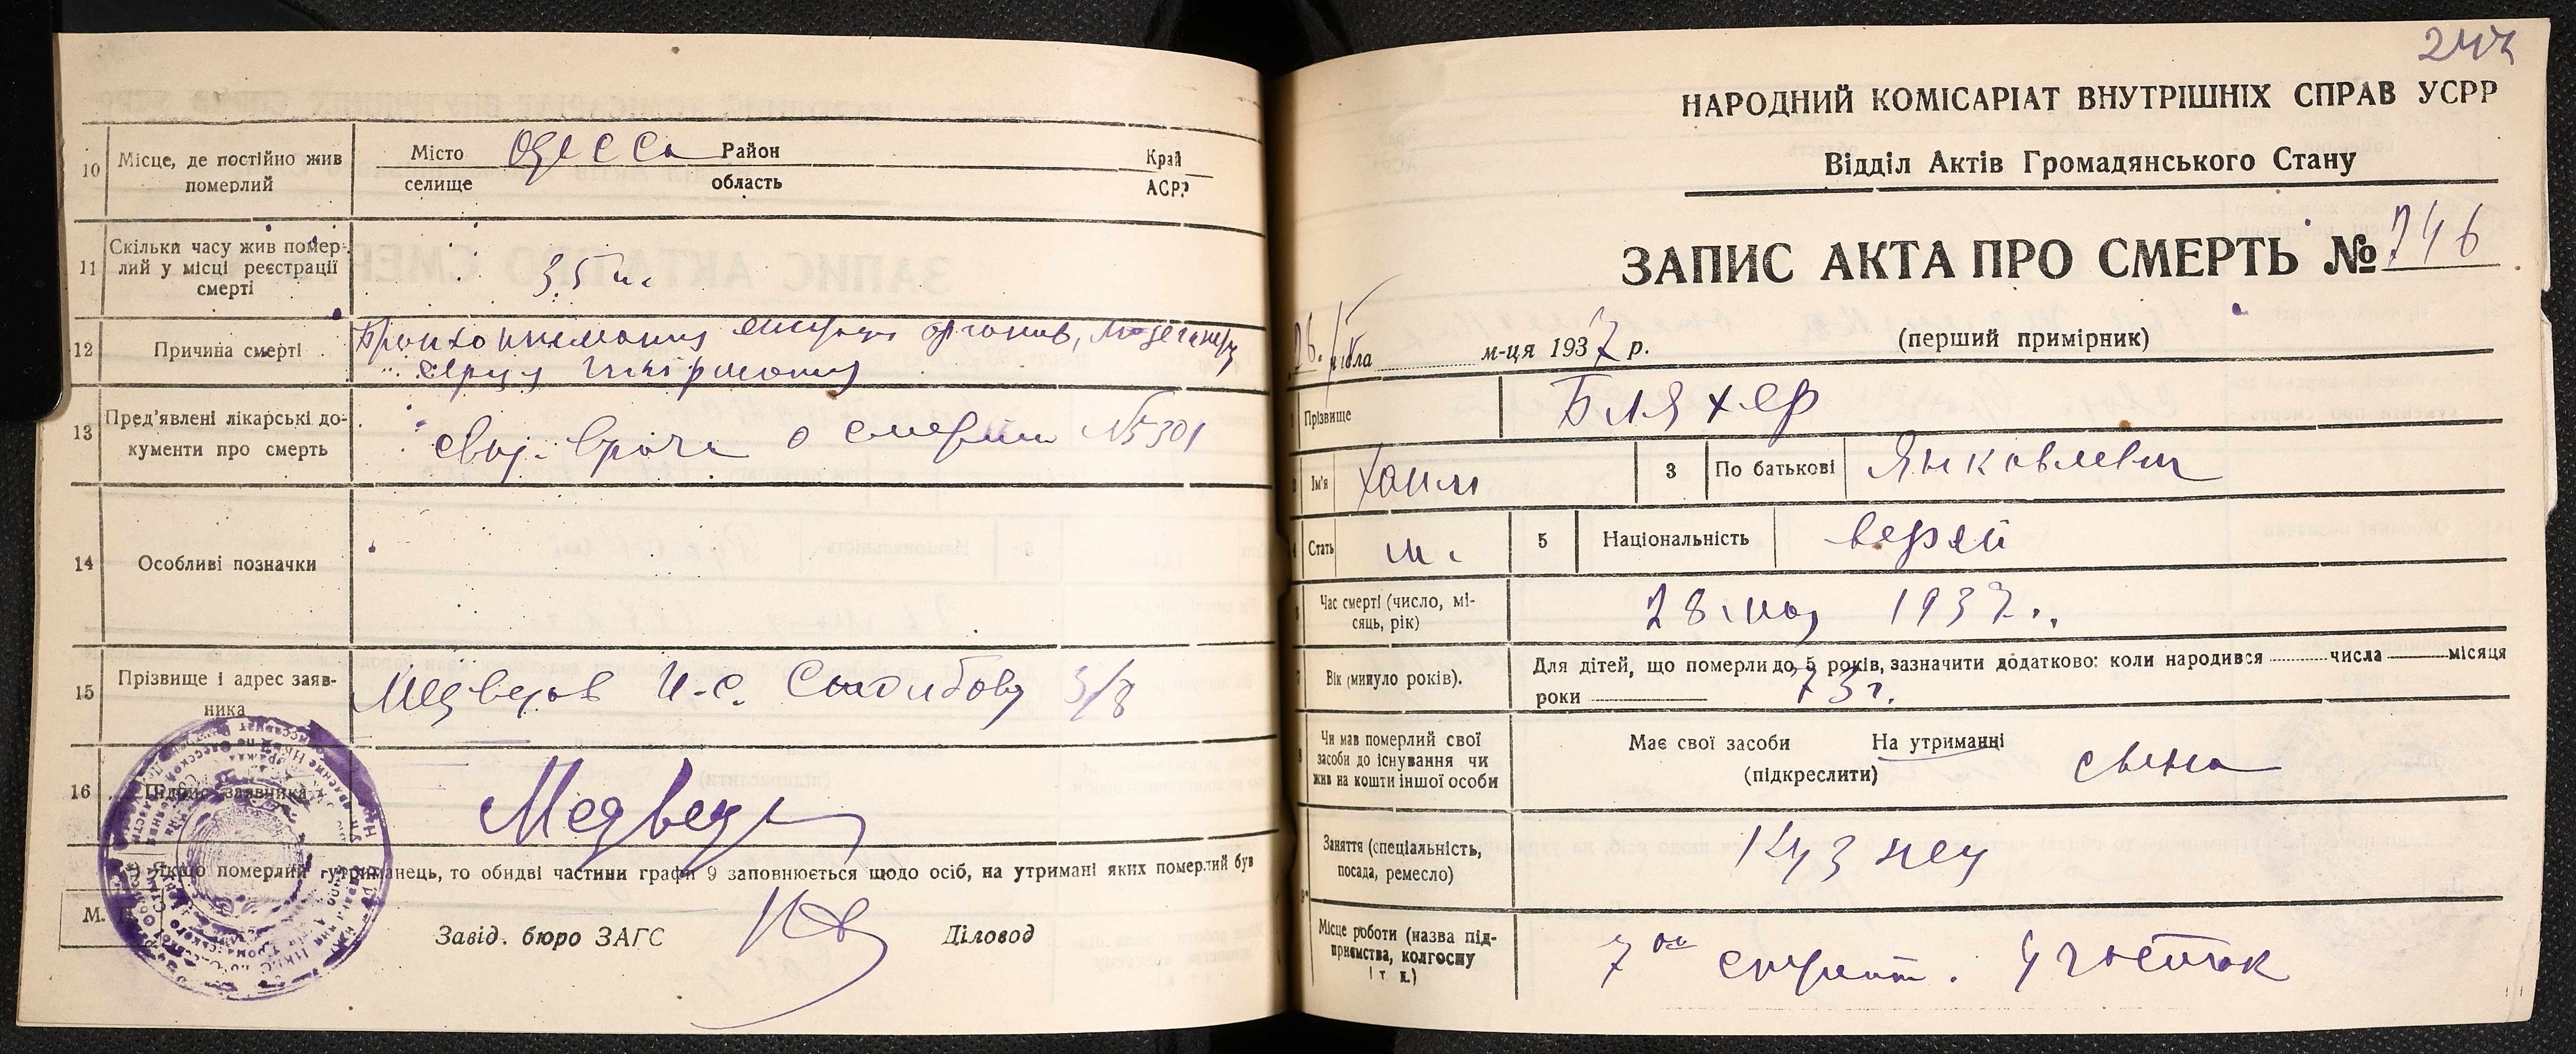 10 Місце, де постійно жив померлий
Місто Одесса Район Край
селище область АСРР
11 Скільки часу жив помер-
лий у місці реєстрації
смерті
35 л.
12 Причина смерті
Бронхопневмония органов,
сердца
13 Пред'явлені лікарські до-
кументи про смерть
свид. врача о смерти №5301
14 Особливі позначки
15 Прізвище і адрес заяв-
ника
Медведев И-С. 3/8
16 Підпис заявника
Медведев
*) Якщо померлий утриманець, то обидві частини графи 9 заповнюється щодо осіб, на утримані яких померлий був
М.
Завід. бюро ЗАГС Діловод
НАРОДНИЙ КОМІСАРІАТ ВНУТРІШНІХ СПРАВ УСРР
Відділ Актів Громадянського Стану
ЗАПИС АКТА ПРО СМЕРТЬ № 746
числа м-ця 1937 р. (перший примірник)
1 Прізвище Бляхер
2 Ім'я Хаим 3 По батькові Янковлевич
4 Стать м. 5 Національність еврей
6 Час смерті (число, мі-
сяць, рік)
28 мая 1937 г.
7 Вік (минуло років).
Для дітей, що померли до 5 років, зазначити додатково: коли народився числа місяця
роки 73 г.
8 Чи мав померлий свої
засоби до існування чи
жив на кошти іншої особи
Має свої засоби На утриманні
(підкреслити)
сына
9* Заняття (спеціальність,
посада, ремесло)
Кузнец
Місце роботи (назва під-
приємства, колгоспу
і т. п.)
7ой строит. участок